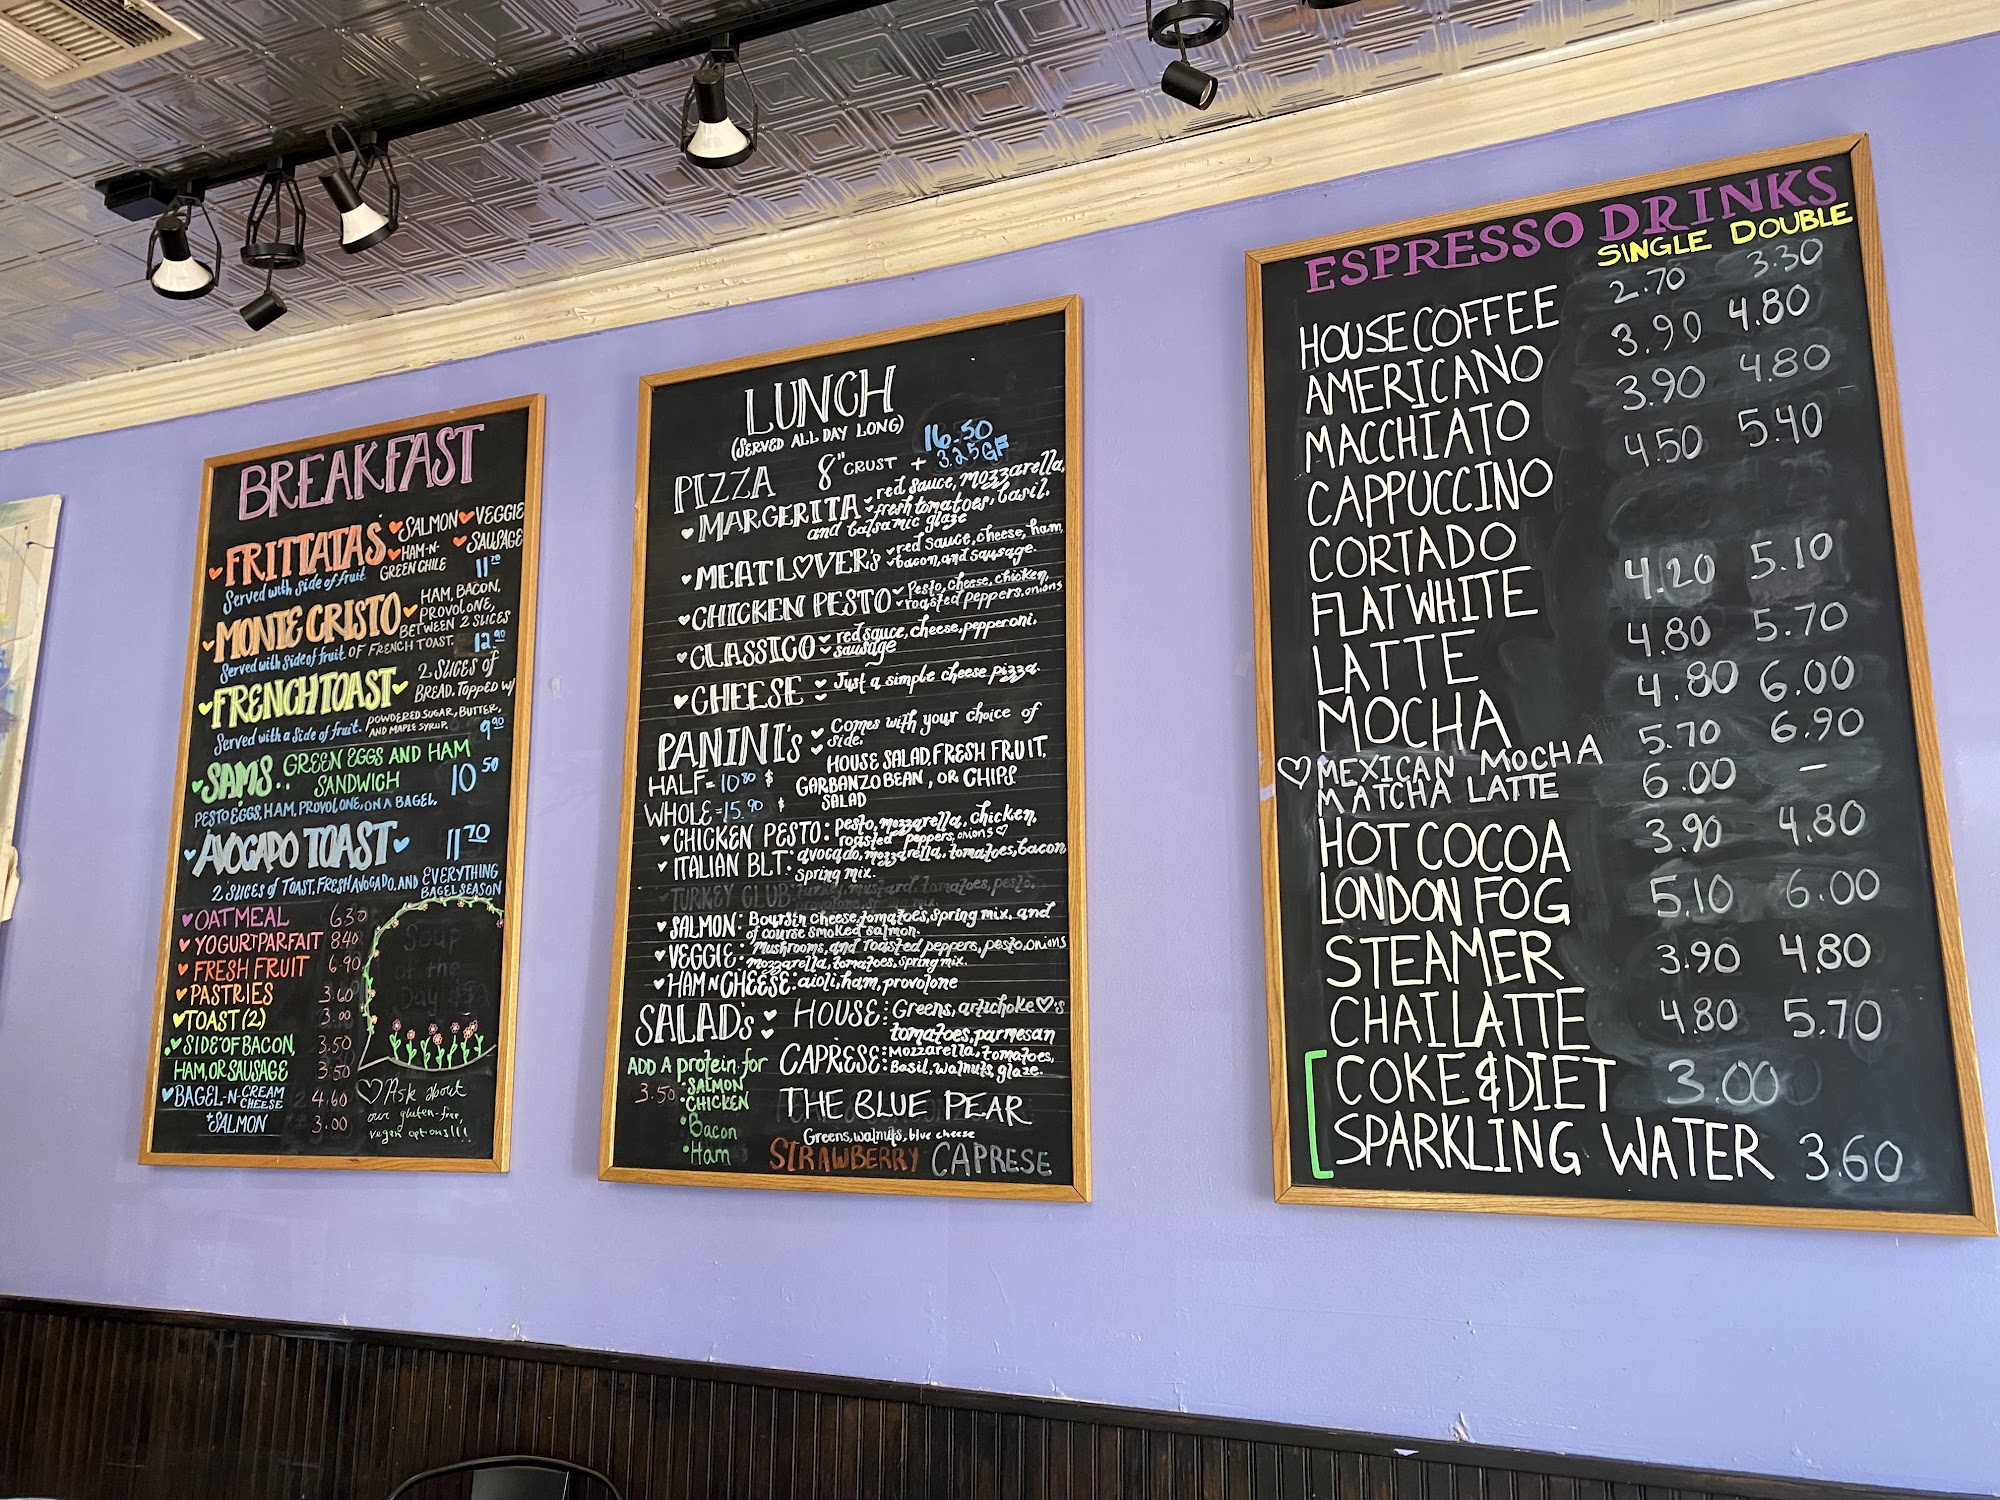 BREAKFAST
FRITTATAS
SALMON VEGGIE
HAM-N- SAUSAGE
GREEN CHILE
Served with side of fruit. 11.70
MONTE CRISTO
HAM, BACON,
PROVOLONE,
BETWEEN 2 SLICES
Served with side of fruit. OF FRENCH TOAST. 12.90
FRENCH TOAST
2 SLICES of
BREAD. TOPPED W/
POWDERED SUGAR, BUTTER,
AND MAPLE SYRUP.
Served with a side of fruit. 9.90
SAMS: GREEN EGGS AND HAM
SANDWICH 10.50
PESTO EGGS, HAM, PROVOLONE, ON A BAGEL.
AVOCADO TOAST 11.70
2 SLICES of TOAST, FRESH AVOCADO, AND EVERYTHING
BAGEL SEASON
OATMEAL 6.30
YOGURT PARFAIT 8.40
FRESH FRUIT 6.90
PASTRIES 3.60
TOAST (2) 3.00
SIDE OF BACON, 3.50
HAM, OR SAUSAGE 3.50
BAGEL-N-CREAM CHEESE 4.60
+SALMON 3.00
Soup
of the
Day
Ask about
our gluten-free
vegan options!!!
LUNCH
(SERVED ALL DAY LONG)
PIZZA 8" CRUST 16.50
+ 3.25 GF
MARGERITA red sauce, mozzarella,
fresh tomatoes, basil,
and balsamic glaze
MEAT LOVER'S red sauce, cheese, ham,
bacon, and sausage.
CHICKEN PESTO Pesto, cheese, chicken,
roasted peppers, onions
CLASSICO red sauce, cheese, pepperoni,
sausage
CHEESE Just a simple cheese pizza.
PANINI's Comes with your choice of
side.
HOUSE SALAD, FRESH FRUIT,
HALF = 10.80 $ GARBANZO BEAN, OR CHIPS
SALAD
WHOLE = 15.90 $
CHICKEN PESTO: pesto, mozzarella, chicken,
roasted peppers, onions
ITALIAN BLT: avocado, mozzarella, tomatoes, bacon
spring mix.
TURKEY CLUB: turkey, mustard, tomatoes, pesto,
provolone, spring mix.
SALMON: Boursin cheese, tomatoes, spring mix, and
of course smoked salmon.
VEGGIE: Mushrooms, and roasted peppers, pesto, onions
mozzarella, tomatoes, spring mix.
HAM N CHEESE: aioli, ham, provolone
SALAD's HOUSE: Greens, artichoke ♡'s
tomatoes, parmesan
CAPRESE: Mozzarella, tomatoes,
Basil, walnuts, glaze.
ADD A protein for
3.50 • SALMON
• CHICKEN
• Bacon
• Ham
THE BLUE PEAR
Greens, walnuts, blue cheese
STRAWBERRY CAPRESE
ESPRESSO DRINKS
SINGLE DOUBLE
HOUSE COFFEE 2.70 3.30
AMERICANO 3.90 4.80
MACCHIATO 3.90 4.80
CAPPUCCINO 4.50 5.40
CORTADO
FLAT WHITE 4.20 5.10
LATTE 4.80 5.70
MOCHA 4.80 6.00
MEXICAN MOCHA 5.70 6.90
MATCHA LATTE 6.00 —
HOT COCOA 3.90 4.80
LONDON FOG 5.10 6.00
STEAMER 3.90 4.80
CHAI LATTE 4.80 5.70
COKE & DIET 3.00
SPARKLING WATER 3.60